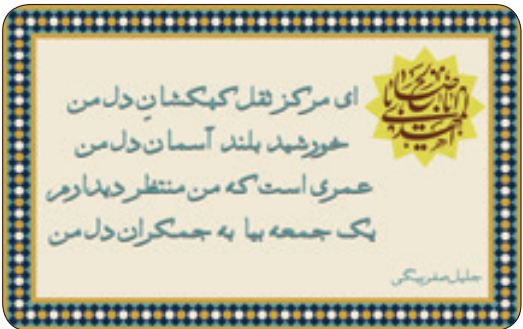 ای مرکز ثقل کهکشانِ دل من
خورشید بلند آسمان دل من
عمری است که من منتظر دیدارم
یک جمعه بیا به جمکران دل من
جلیل صفربیگی